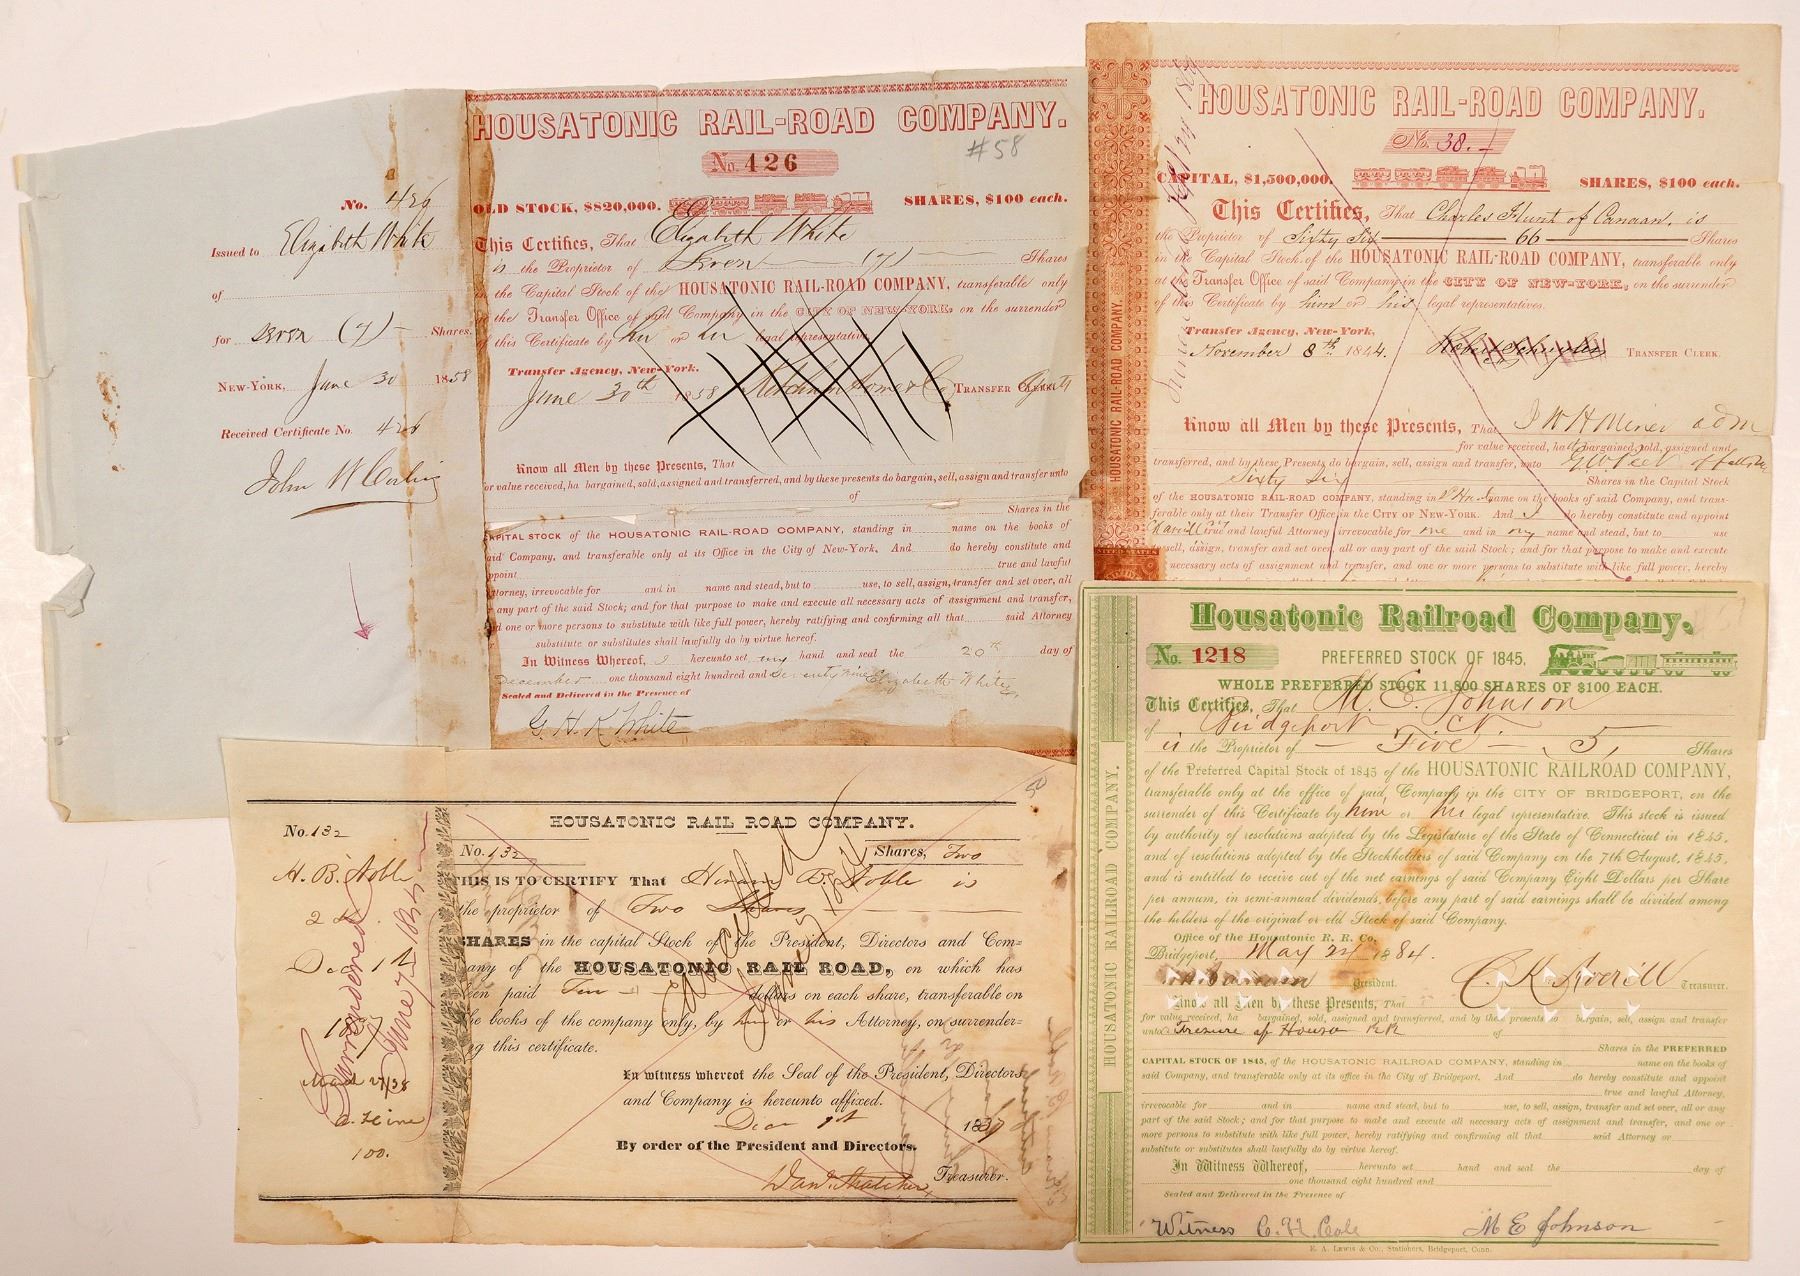 No. 426
Issued to Elizabeth White
of
for seven (7) Shares.
NEW-YORK, June 30 1858
Received Certificate No. 426
HOUSATONIC RAIL-ROAD COMPANY.
#58
No. 426
OLD STOCK, $820,000. SHARES, $100 each.
This Certifies, That Elizabeth White
is the Proprietor of seven (7) Shares
in the Capital Stock of the HOUSATONIC RAIL-ROAD COMPANY, transferable only
at the Transfer Office of said Company in the CITY OF NEW-YORK, on the surrender
of this Certificate by her or her legal representative
Transfer Agency, New-York.
June 30th 1858 TRANSFER CLERK
Know all Men by these Presents, That
for value received, ha bargained, sold, assigned and transferred, and by these presents do bargain, sell, assign and transfer unto
of
Shares in the
CAPITAL STOCK OF THE HOUSATONIC RAIL-ROAD COMPANY, standing in name on the books of
said Company, and transferable only at its Office in the City of New-York. And do hereby constitute and
appoint true and lawful
Attorney, irrevocable for and in name and stead, but to use, to sell, assign, transfer and set over, all
or any part of the said Stock; and for that purpose to make and execute all necessary acts of assignment and transfer,
and one or more persons to substitute with like full power, hereby ratifying and confirming all that said Attorney
substitute or substitutes shall lawfully do by virtue hereof.
In Witness Whereof, I hereunto set my hand and seal the 20th day of
December one thousand eight hundred and seventy nine Elizabeth White
Sealed and Delivered in the Presence of
G. H. K. White
HOUSATONIC RAIL-ROAD COMPANY.
No. 38.
CAPITAL, $1,500,000. SHARES, $100 each.
This Certifies, That Charles Hunt of Canaan, is
the Proprietor of Sixty Six 66 Shares
in the Capital Stock of the HOUSATONIC RAIL-ROAD COMPANY, transferable only
at the Transfer Office of said Company in the CITY OF NEW-YORK, on the surrender
of this Certificate by him or his legal representatives.
Transfer Agency, New-York,
November 8th 1844. Robert Schuyler TRANSFER CLERK.
Know all Men by these Presents, That
for value received, ha bargained, sold, assigned and
transferred, and by these Presents do bargain, sell, assign and transfer, unto
Sixty Six Shares in the Capital Stock
of the HOUSATONIC RAIL-ROAD COMPANY, standing in name on the books of said Company, and trans-
ferable only at their Transfer Office in the CITY OF NEW-YORK. And I do hereby constitute and appoint
true and lawful Attorney irrevocable for me and in my name and stead, but to use
to sell, assign, transfer and set over all or any part of the said Stock; and for that purpose to make and execute
necessary acts of assignment and transfer, and one or more persons to substitute with like full power, hereby
HOUSATONIC RAIL-ROAD COMPANY.
UNITED STATES
No. 132
H. B. Noble
Dec 1st
Surrendered
100.
50
HOUSATONIC RAIL ROAD COMPANY.
No. 132 Shares, Two
THIS IS TO CERTIFY That Hiram B. Noble is
the proprietor of Two Shares
SHARES in the capital Stock of the President, Directors and Com=
pany of the HOUSATONIC RAIL ROAD, on which has
been paid Ten dollars on each share, transferable on
the books of the company only, by him or his Attorney, on surrender=
ing this certificate.
In witness whereof the Seal of the President, Directors
and Company is hereunto affixed.
Dec 1st 1837
By order of the President and Directors.
Treasurer.
Cancelled
HOUSATONIC RAILROAD COMPANY.
Housatonic Railroad Company.
No. 1218 PREFERRED STOCK OF 1845.
WHOLE PREFERRED STOCK 11,800 SHARES OF $100 EACH.
This Certifies, That M. E. Johnson
of Bridgeport Ct
is the Proprietor of Five 5, Shares
of the Preferred Capital Stock of 1845 of the HOUSATONIC RAILROAD COMPANY,
transferable only at the office of said Company in the CITY OF BRIDGEPORT, on the
surrender of this Certificate by him or his legal representative. This stock is issued
by authority of resolutions adopted by the Legislature of the State of Connecticut in 1845,
and of resolutions adopted by the Stockholders of said Company on the 7th August, 1845,
and is entitled to receive out of the net earnings of said Company Eight Dollars per Share
per annum, in semi-annual dividends, before any part of said earnings shall be divided among
the holders of the original or old Stock of said Company.
Office of the Housatonic R. R. Co.
Bridgeport, May 24 1884.
President. C. K. Averill Treasurer.
Know all Men by these Presents, That
for value received, ha bargained, sold, assigned and transferred, and by these presents do bargain, sell, assign and transfer
unto Tresure of Housa RR of
Shares in the PREFERRED
CAPITAL STOCK OF 1845, of the HOUSATONIC RAILROAD COMPANY, standing in name on the books of
said Company, and transferable only at its office in the City of Bridgeport. And do hereby constitute and appoint
true and lawful Attorney,
irrevocable for and in name and stead, but to use, to sell, assign, transfer and set over, all or any
part of the said Stock; and for that purpose to make and execute all necessary acts of assignment and transfer, and one or
more persons to substitute with like full power, hereby ratifying and confirming all that said Attorney or
substitute or substitutes shall lawfully do by virtue hereof.
In Witness Whereof, hereunto set hand and seal the day of
one thousand eight hundred and
Sealed and Delivered in the Presence of
Witness C. H. Cole M E Johnson
E. A. LEWIS & CO., Stationers, Bridgeport, Conn.